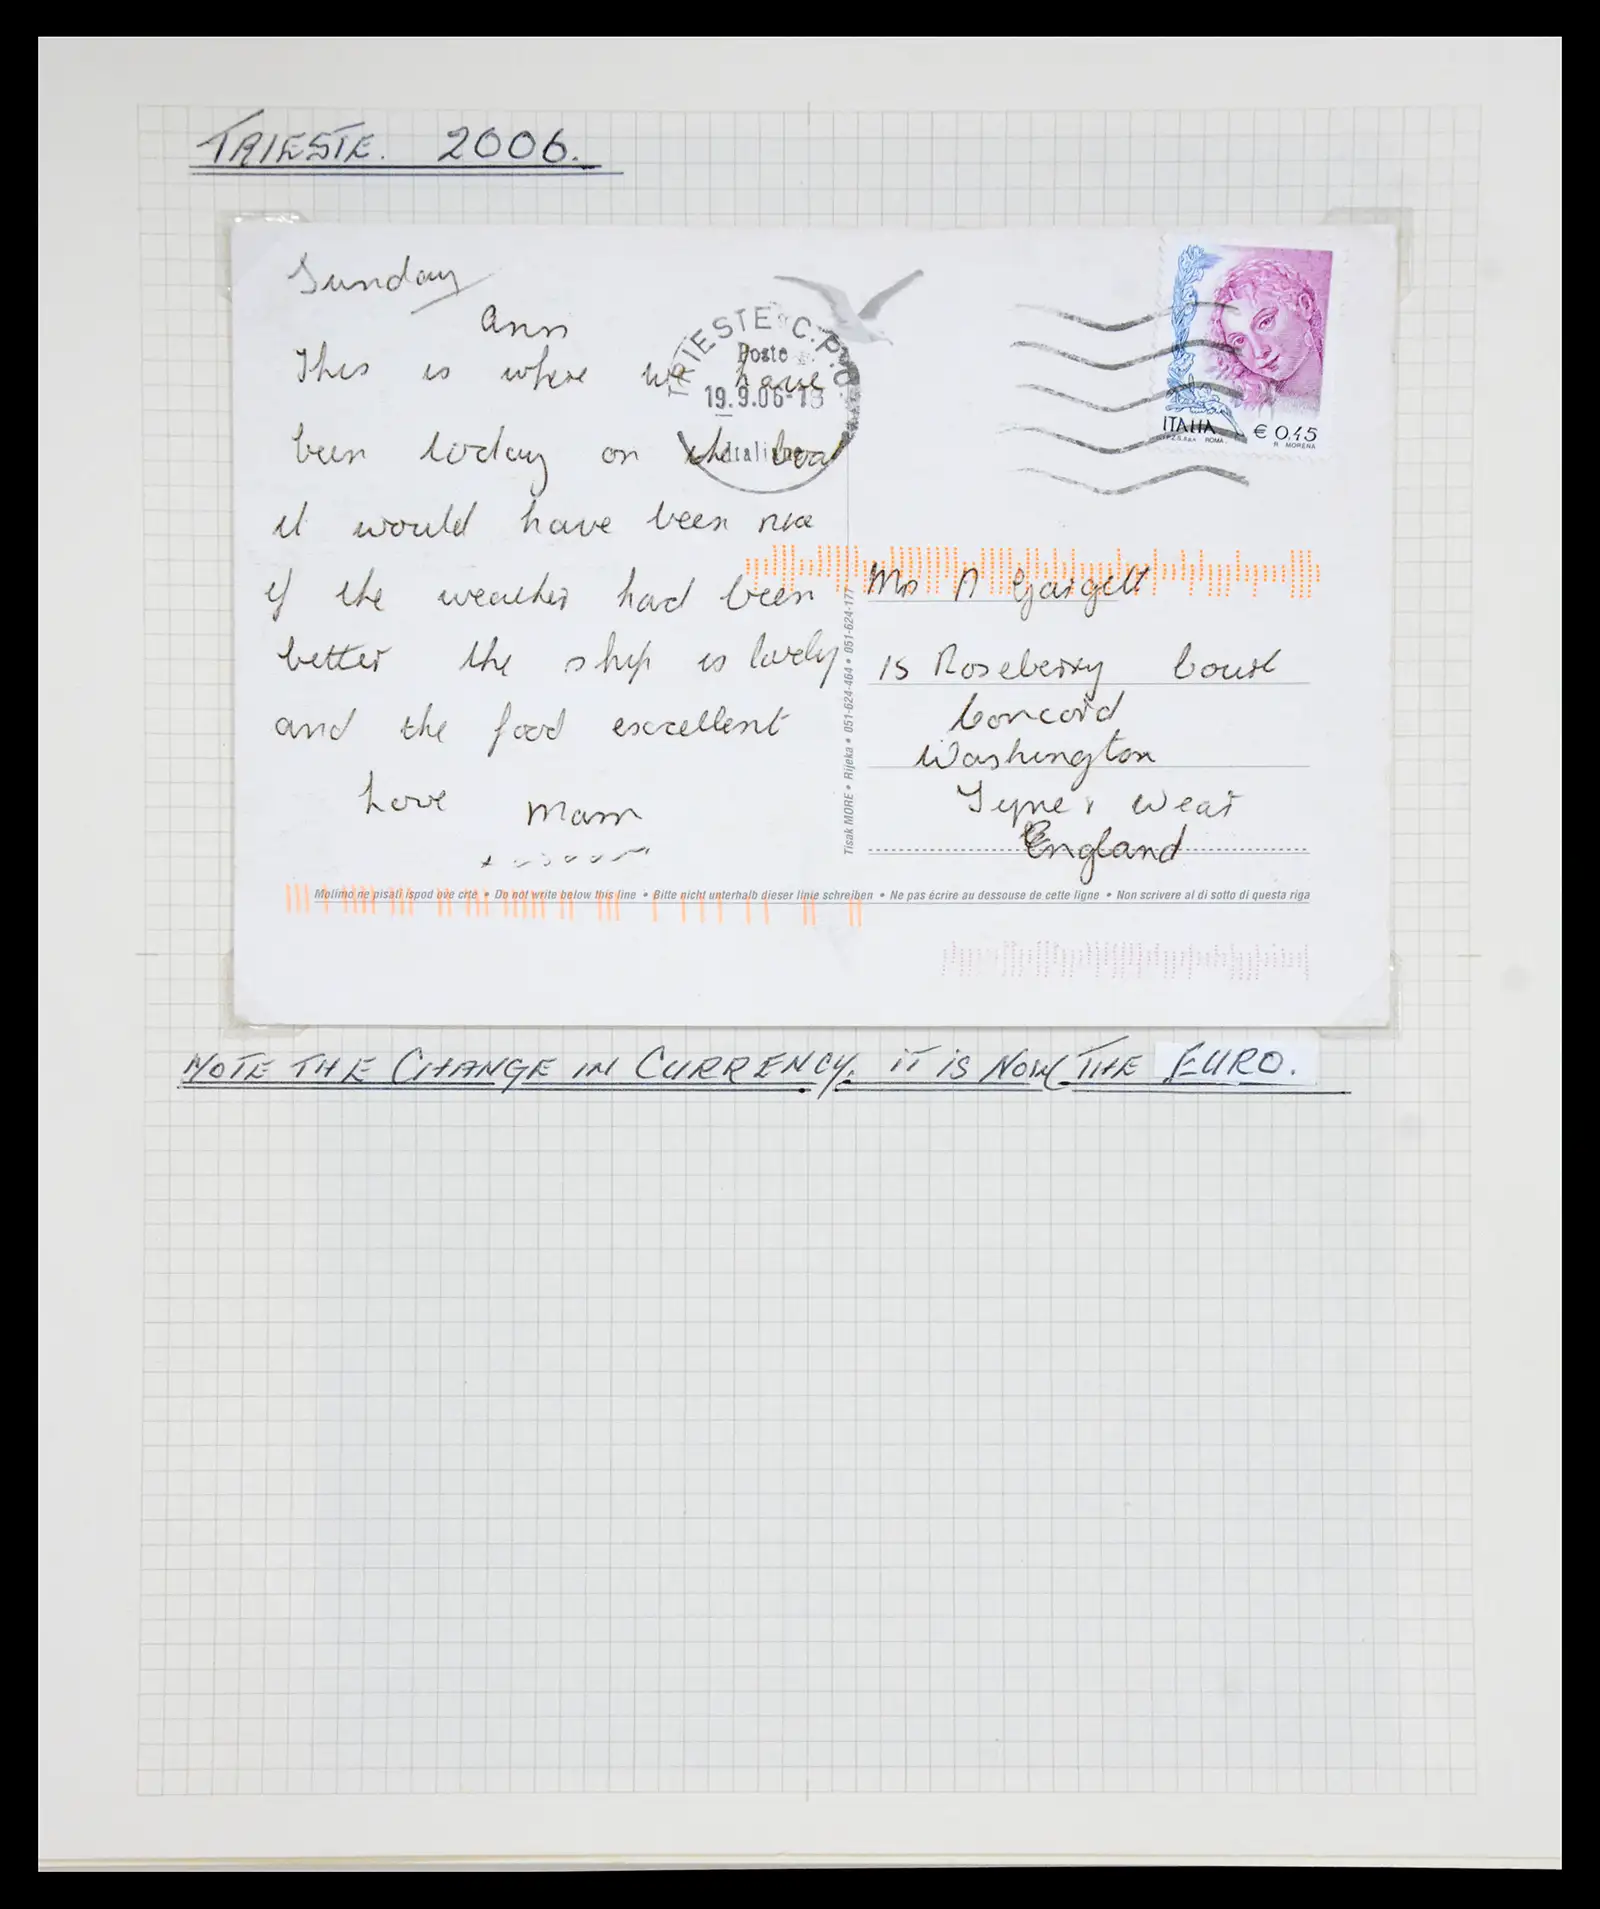 TRIESTE. 2006.
Sunday
Ann
This is where we have
been today on the boat
it would have been nice
if the weather had been
better the ship is lovely
and the food excellent
Love Mam
TRIESTE C.P.O.
Poste
19.9.06-18
Italiane
ITALIA
€ 0,45
I.P.Z.S. S.p.A. ROMA.
R. MORENA
Mrs A Gargett
15 Roseberry Court
Concord
Washington
Tyne & Wear
England
Tisak MORE • Rijeka • 051-624-464 • 051-624-177
Molimo ne pisati ispod ove crte • Do not write below this line • Bitte nicht unterhalb dieser linie schreiben • Ne pas écrire au dessouse de cette ligne • Non scrivere al di sotto di questa riga
NOTE THE CHANGE IN CURRENCY. IT IS NOW THE EURO.